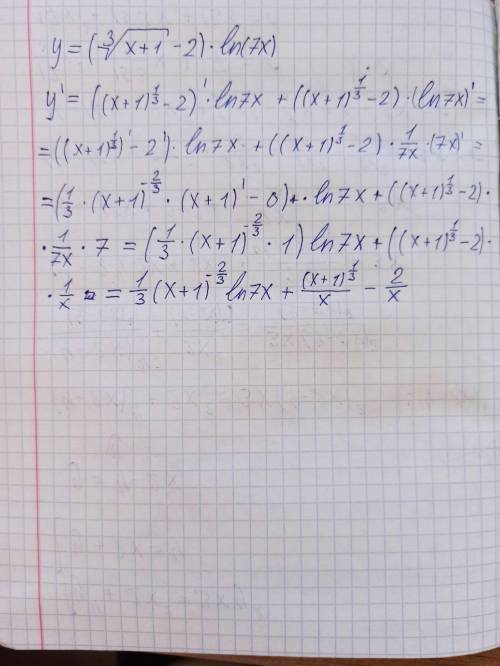 y = (∛(x+1) - 2) · ln(7x)
y' = ((x+1)^(1/3) - 2)' · ln7x + ((x+1)^(1/3) - 2) · (ln7x)' =
= (((x+1)^(1/3))' - 2') · ln7x + ((x+1)^(1/3) - 2) · 1/(7x) · (7x)' =
= (1/3 · (x+1)^(-2/3) · (x+1)' - 0) · ln7x + ((x+1)^(1/3) - 2) ·
· 1/(7x) · 7 = (1/3 · (x+1)^(-2/3) · 1) ln7x + ((x+1)^(1/3) - 2) ·
· 1/x = 1/3 (x+1)^(-2/3) ln7x + (x+1)^(1/3)/x - 2/x